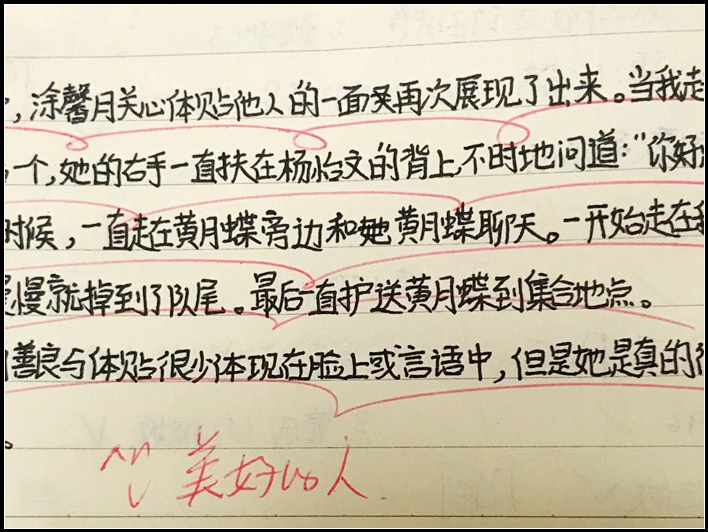 ，涂馨月关心体贴他人的一面又再次展现了出来。当我走
一个，她的右手一直扶在杨怡文的背上，不时地问道：“你好
时候，一直走在黄月蝶旁边和她黄月蝶聊天。一开始走在
慢就掉到了队尾。最后一直护送黄月蝶到集合地点。
善良与体贴很少体现在脸上或言语中，但是她是真的很
。
美好的人